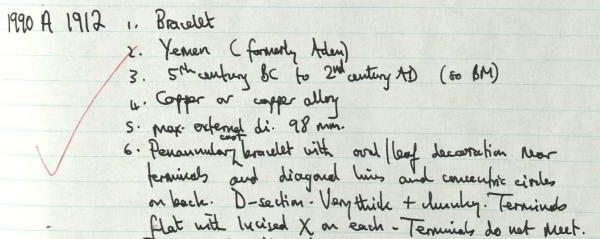 1990 A 1912 1. Bracelet
2. Yemen (formerly Aden)
3. 5th century BC to 2nd century AD (so BM)
4. Copper or copper alloy
5. max. external di. 98 mm.
6. Penannular, cast bracelet with oval/leaf decoration near
terminals and diagonal lines and concentric circles
on back. D-section. Very thick + chunky. Terminals
flat with incised X on each - Terminals do not meet.